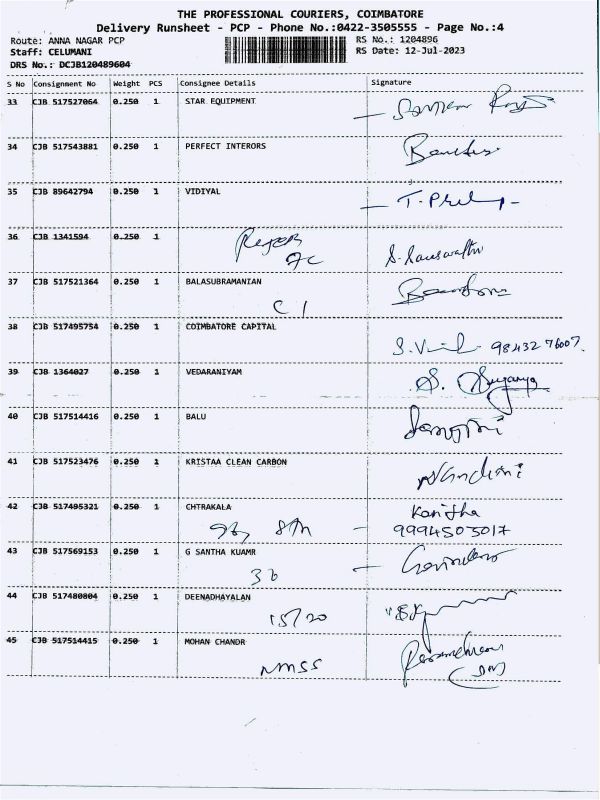 THE PROFESSIONAL COURIERS, COIMBATORE
Delivery Runsheet - PCP - Phone No.:0422-3505555 - Page No.:4
Route: ANNA NAGAR PCP RS No.: 1204896
Staff: CELUMANI RS Date: 12-Jul-2023
DRS No.: DCJB120489604
S No Consignment No Weight PCS Consignee Details Signature
33 CJB 517527064 0.250 1 STAR EQUIPMENT
34 CJB 517543881 0.250 1 PERFECT INTERORS
35 CJB 89642794 0.250 1 VIDIYAL
36 CJB 1341594 0.250 1
S. Saraswathi
37 CJB 517521364 0.250 1 BALASUBRAMANIAN
C 1
38 CJB 517495754 0.250 1 COIMBATORE CAPITAL
98432 76007.
39 CJB 1364027 0.250 1 VEDARANIYAM
S. Suganya
40 CJB 517514416 0.250 1 BALU
41 CJB 517523476 0.250 1 KRISTAA CLEAN CARBON
Nandini
42 CJB 517495321 0.250 1 CHTRAKALA Kavitha
9994503017
43 CJB 517569153 0.250 1 G SANTHA KUAMR
36
44 CJB 517480804 0.250 1 DEENADHAYALAN
15/20
45 CJB 517514415 0.250 1 MOHAN CHANDR
NMSS